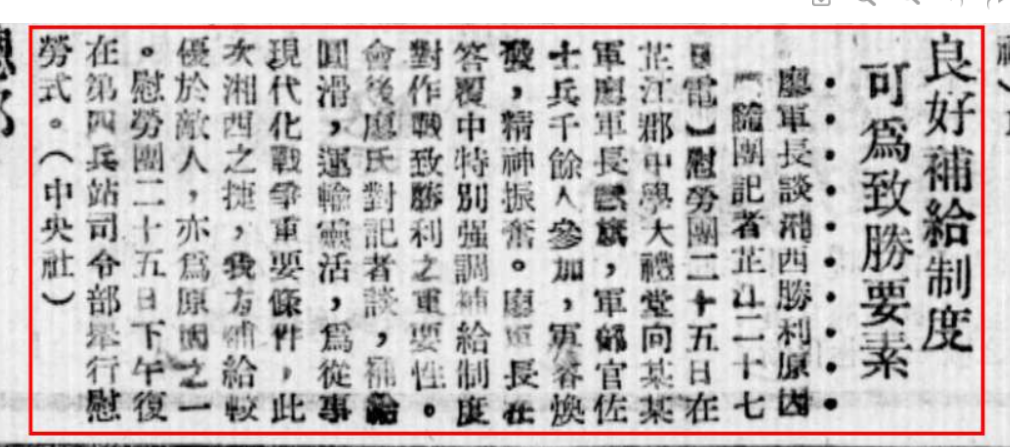 良好補給制度
可爲致勝要素
廖軍長談湘西勝利原因
【隨團記者芷江二十七
日電】慰勞團二十五日在
芷江郡中學大禮堂向某某
軍廖軍長獻旗，軍師官佐
士兵千餘人參加，軍容煥
發，精神振奮。廖軍長在
答覆中特別强調補給制度
對作戰致勝利之重要性。
會後廖氏對記者談，補給
圓滑，運輸靈活，爲從事
現代化戰爭重要條件，此
次湘西之捷，我方補給較
優於敵人，亦爲原因之一
。慰勞團二十五日下午復
在第四兵站司令部舉行慰
勞式。（中央社）